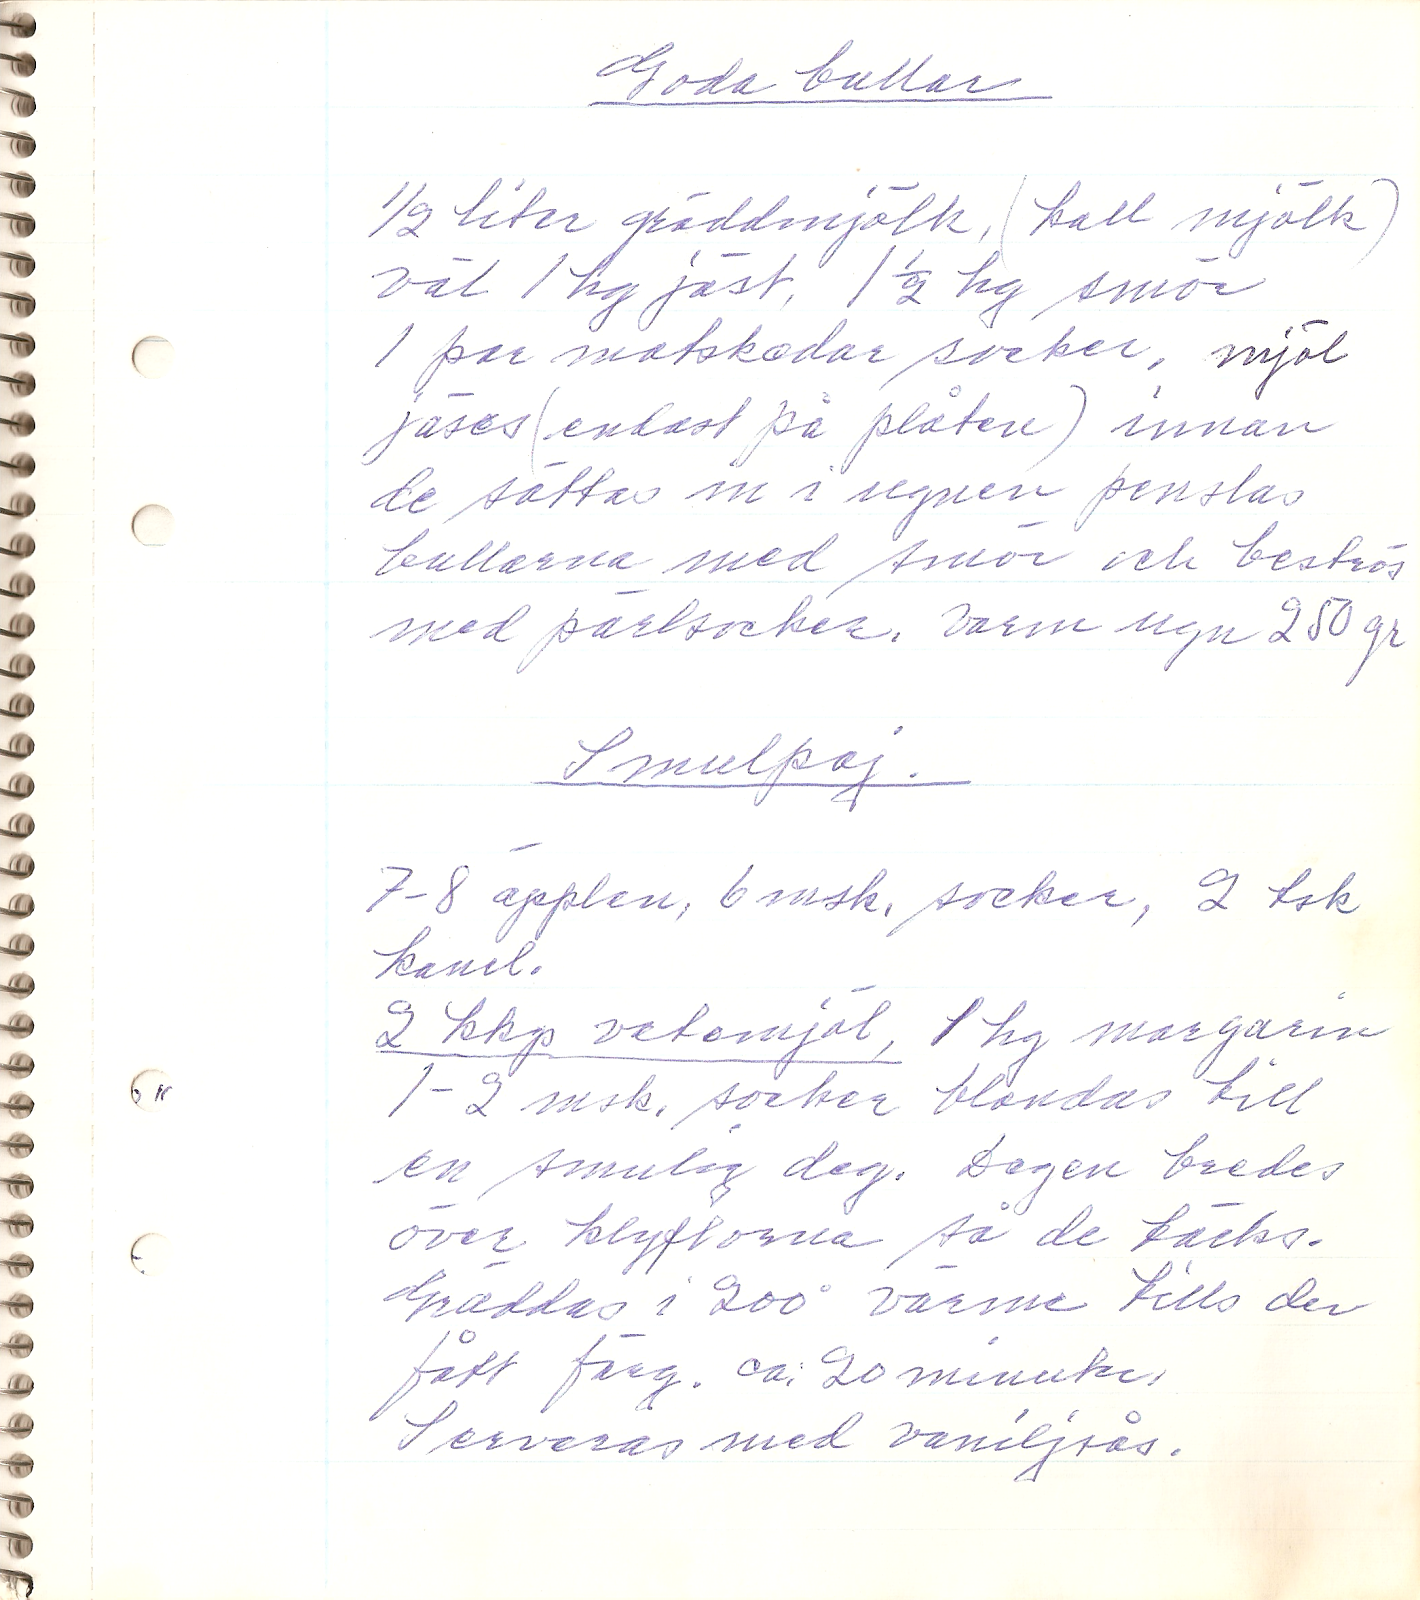 Goda bullar
1/2 liter gräddmjölk, (kall mjölk)
väl 1 hg jäst, 1 1/2 hg smör
1 par matskedar socker, mjöl
jäses (endast på plåten) innan
de sättas in i ugnen penslas
bullarna med smör och beströs
med pärlsocker. Varm ugn 250 gr
Smulpaj.
7-8 äpplen, 6 msk. socker, 2 tsk
kanel.
2 kkp vetemjöl, 1 hg margarin
1-2 msk. socker blandas till
en smulig deg. Degen bredes
över klyftorna så de täcks.
Gräddas i 200° värme tills den
fått färg. ca: 20 minuter.
Serveras med vaniljsås.